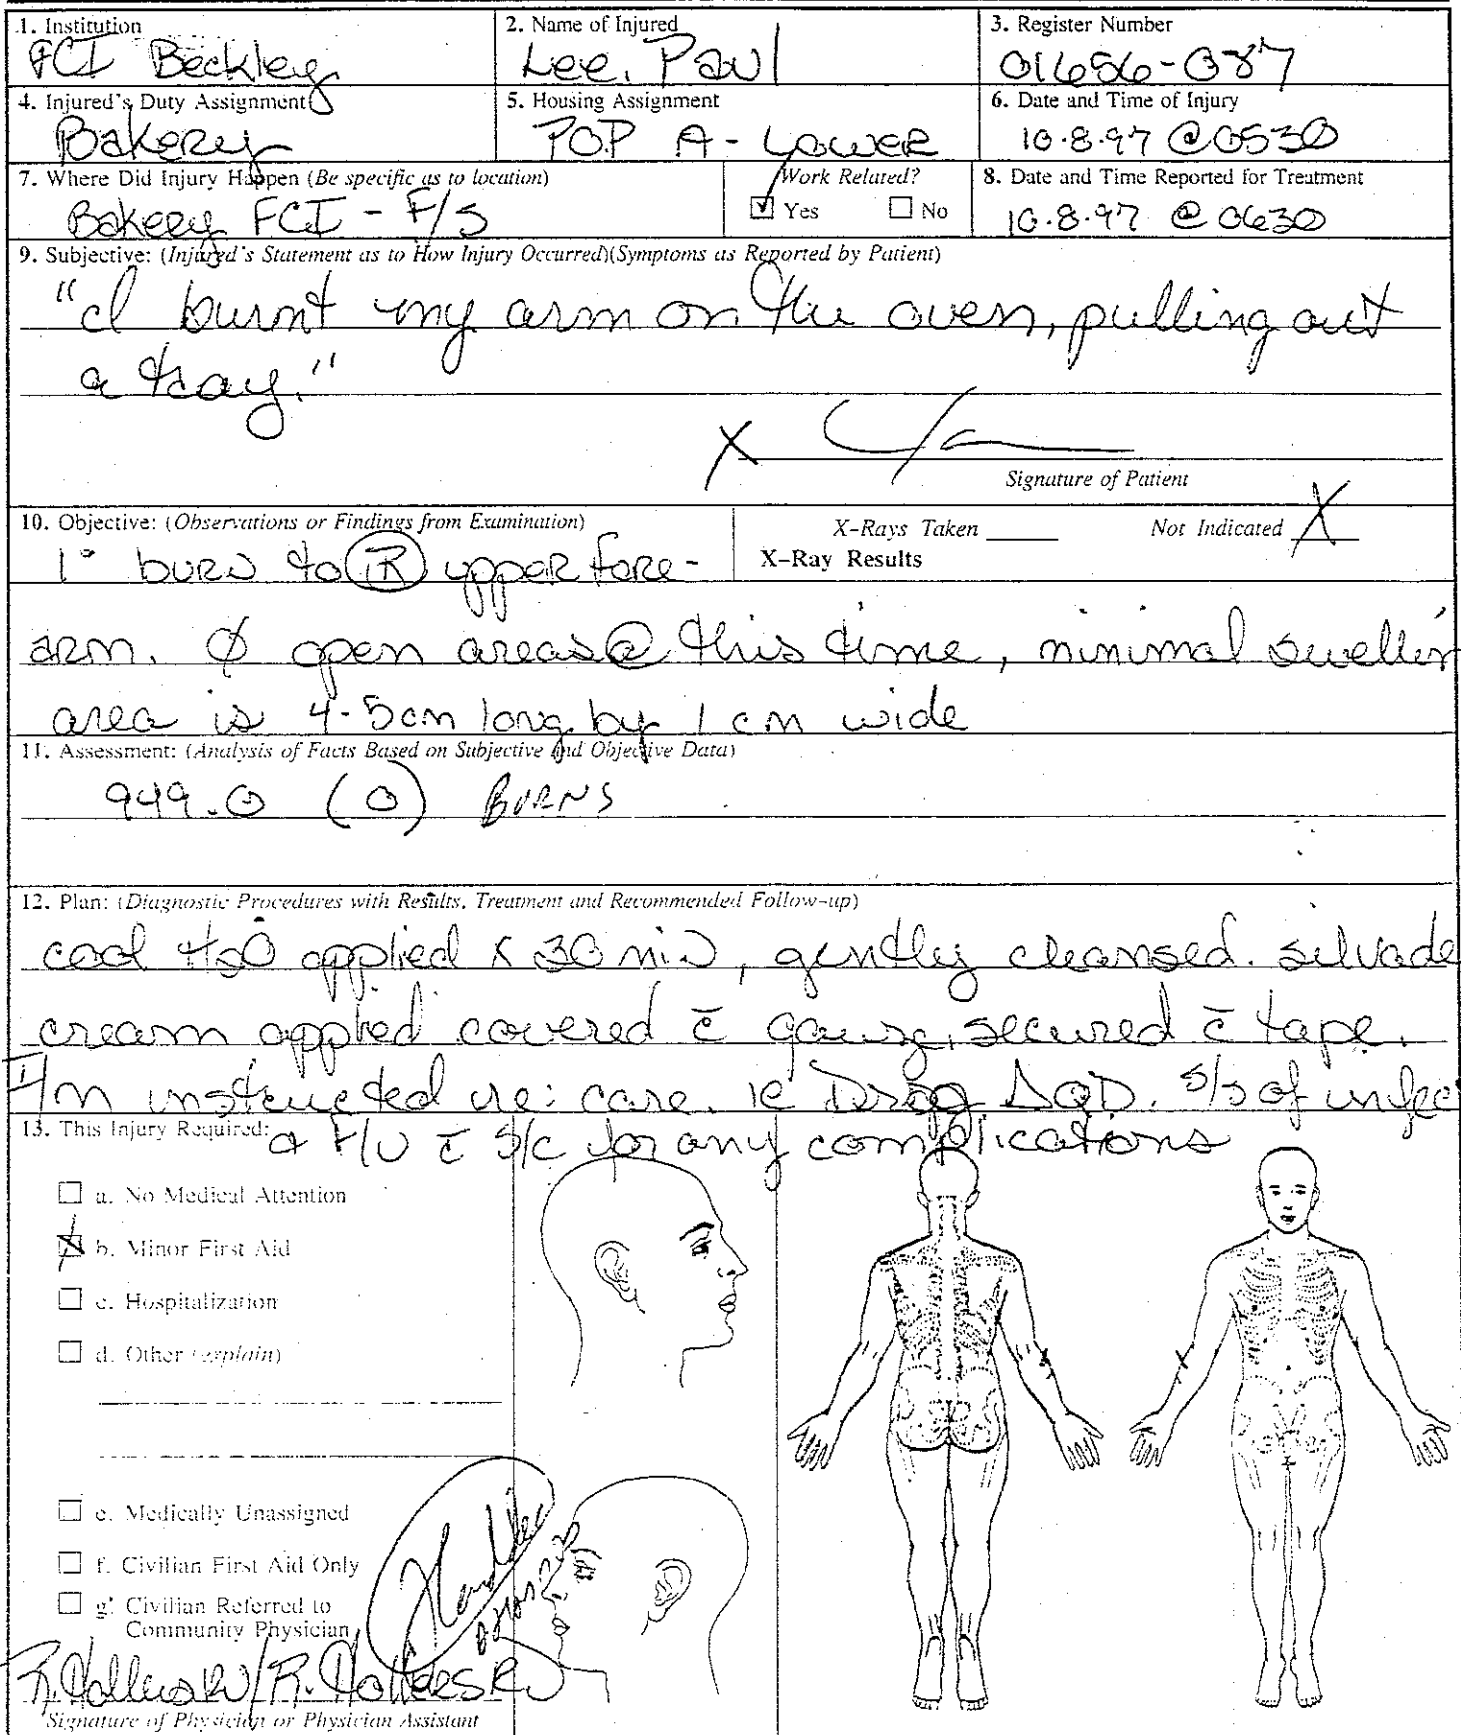 1. Institution
FCI Beckley
2. Name of Injured
Lee, Paul
3. Register Number
01656-087
4. Injured's Duty Assignment
Bakery
5. Housing Assignment
POP A - Lower
6. Date and Time of Injury
10.8.97 @ 0530
7. Where Did Injury Happen (Be specific as to location)
Bakery FCI - F/S
Work Related?
Yes No
8. Date and Time Reported for Treatment
10.8.97 @ 0630
9. Subjective: (Injured's Statement as to How Injury Occurred)(Symptoms as Reported by Patient)
"I burnt my arm on the oven, pulling out
a tray."
X
Signature of Patient
10. Objective: (Observations or Findings from Examination)
X-Rays Taken Not Indicated X
X-Ray Results
1° burn to R upper fore-
arm. ϕ open areas @ this time, minimal swellin
area is 4-5cm long by 1 cm wide
11. Assessment: (Analysis of Facts Based on Subjective and Objective Data)
949.0 (0) BURNS
12. Plan: (Diagnostic Procedures with Results, Treatment and Recommended Follow-up)
cool H2O applied x 30 min, gently cleansed. silvade
cream applied covered c̄ gauze, secured c̄ tape.
I/M instructed re: care. ie Drsg Δ QD. S/S of infec
13. This Injury Required:
& F/U c̄ S/C for any complications
a. No Medical Attention
X b. Minor First Aid
c. Hospitalization
d. Other (explain)
e. Medically Unassigned
f. Civilian First Aid Only
g. Civilian Referred to
Community Physician
Signature of Physician or Physician Assistant